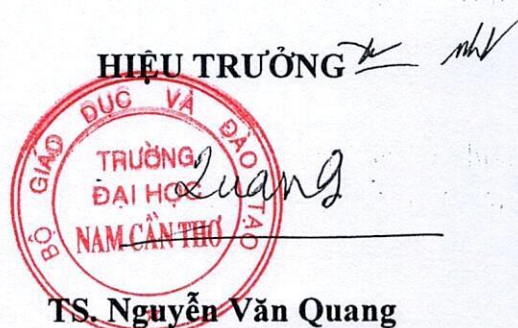 HIỆU TRƯỞNG
BỘ GIÁO DỤC VÀ ĐÀO TẠO
TRƯỜNG
ĐẠI HỌC
NAM CẦN THƠ
Quang
TS. Nguyễn Văn Quang